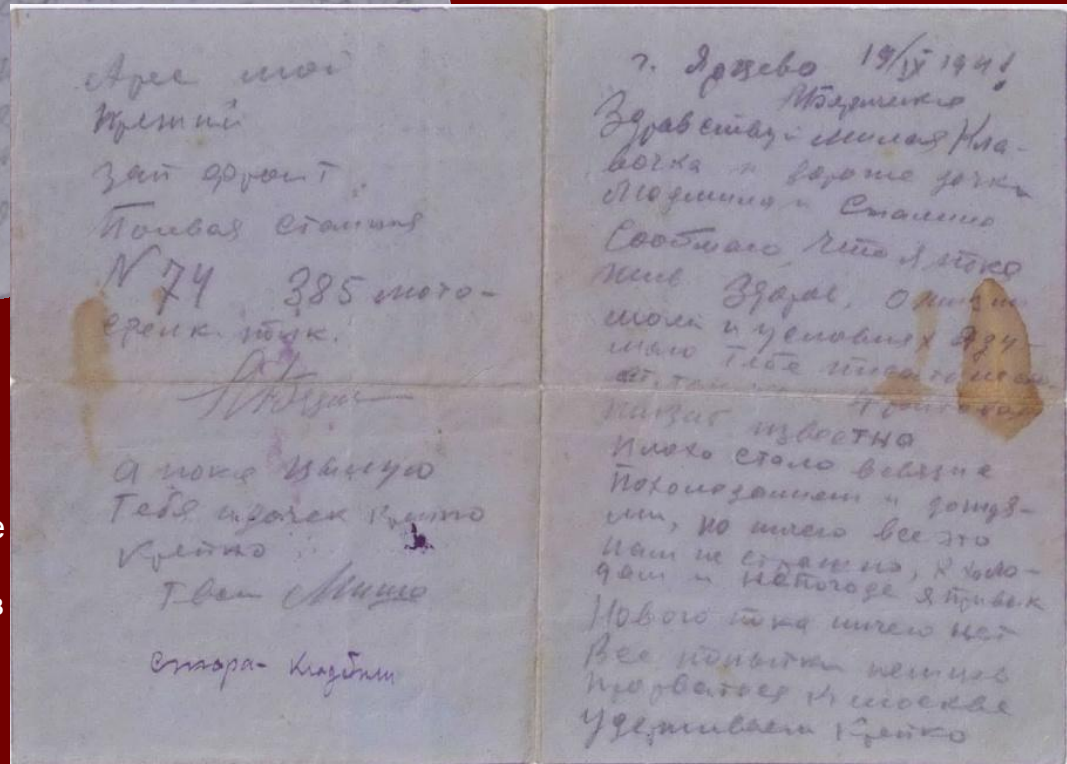 Адрес мой
Прежний
Зап фронт
Полевая станция
N 74 385 мото-
стрелк. полк.
А пока Целую
Тебя и дочек крепко
Крепко
Твой Миша
г. Ярцево 19/IX 1941
Здравствуй милая Кла-
вочка и дочки
Людмила и Сталина
Сообщаю, что я пока
жив Здоров. О жизни
моей и условиях я ду-
маю Тебе писать
известна
Плохо стало в связи с
Похолоданием и дождя-
ми, но ничего все это
нам не страшно, к холо-
дам и непогоде я привык
Нового пока ничего нет
Все попытки немцев
прорваться к москве
удерживаем Крепко
е
в